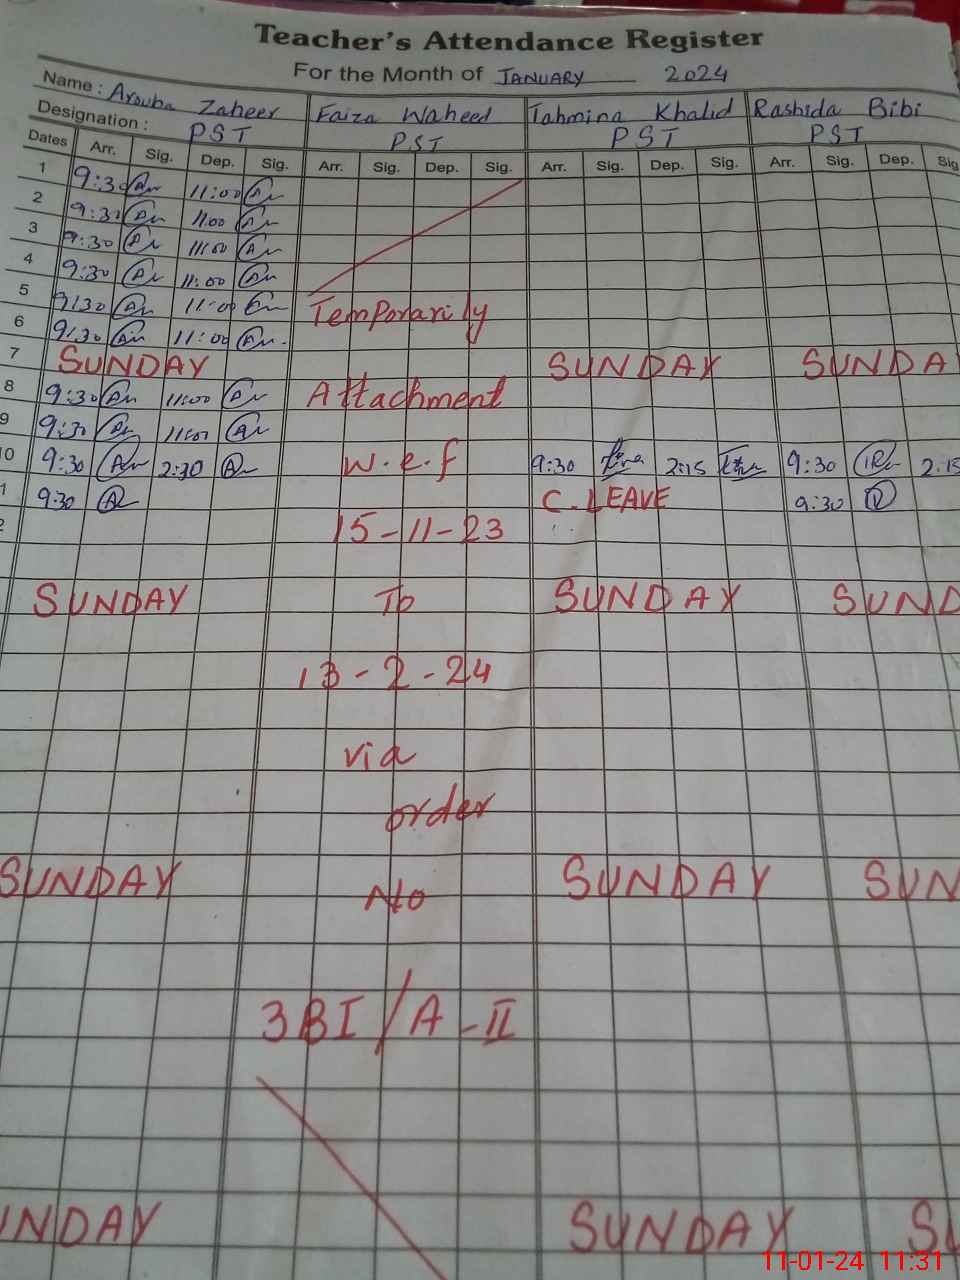 Teacher's Attendance Register
For the Month of JANUARY 2024
Name : Arouba Zaheer Faiza Waheed Tahmina Khalid Rashida Bibi
Designation : PST PST PST PST
Dates Arr. Sig. Dep. Sig. Arr. Sig. Dep. Sig. Arr. Sig. Dep. Sig. Arr. Sig. Dep. Sig
1 9:30 11:00
2 9:30 11:00
3 9:30 11:00
4 9:30 11:00
5 9:30 11:00 Temporarily
6 9:30 11:00
7 SUNDAY SUNDAY SUNDA
8 9:30 11:00 Attachment
9 9:30 11:00
10 9:30 2:30 w.e.f 9:30 2:15 9:30 2:15
1 9:30 C.LEAVE 9:30
2 15-11-23
SUNDAY To SUNDAY SUND
13-2-24
via
order
SUNDAY No SUNDAY SUN
3BI/A-II
UNDAY SUNDAY SU
11-01-24 11:31